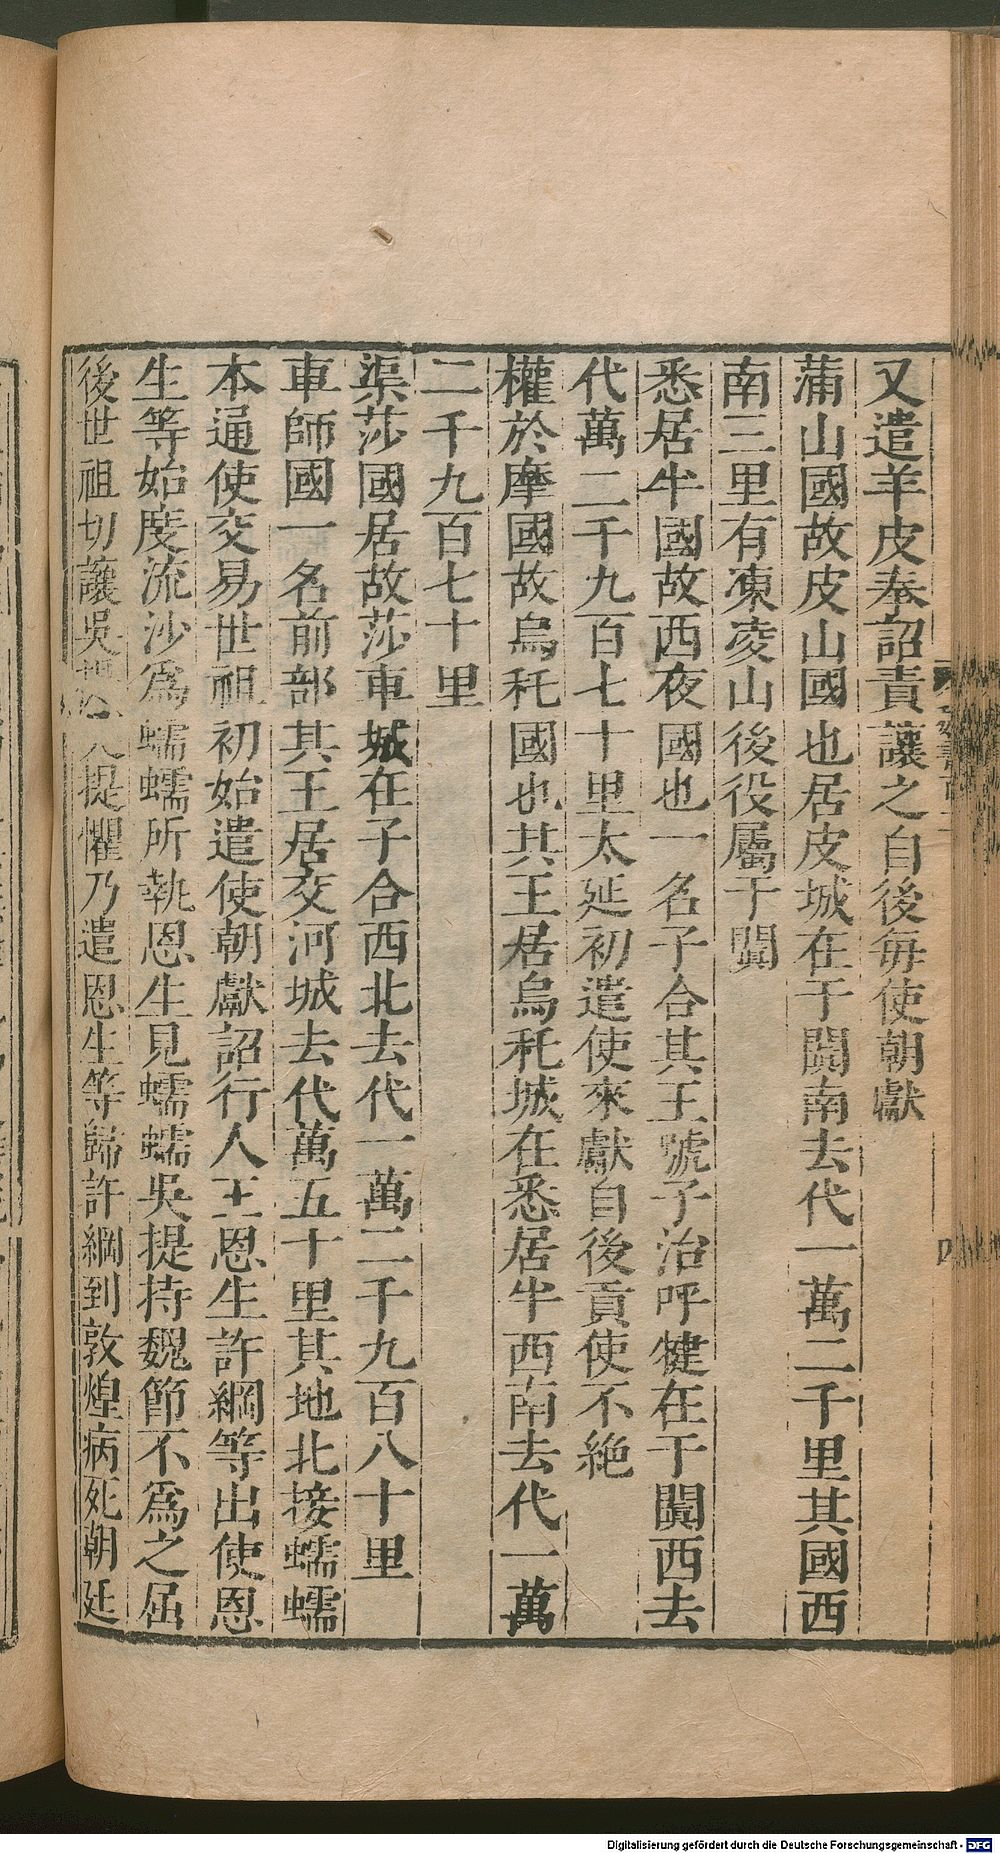 又遣羊皮奉詔責讓之自後每使朝獻
蒲山國故皮山國也居皮城在于闐南去代一萬二千里其國西
南三里有凍凌山後役屬于闐
悉居半國故西夜國也一名子合其王號子治呼犍在于闐西去
代萬二千九百七十里太延初遣使來獻自後貢使不絶
權於摩國故烏秅國也其王居烏秅城在悉居半西南去代一萬
二千九百七十里
渠莎國居故莎車城在子合西北去代一萬二千九百八十里
車師國一名前部其王居交河城去代萬五十里其地北接蠕蠕
本通使交易世祖初始遣使朝獻詔行人王恩生許綱等出使恩
生等始度流沙爲蠕蠕所執恩生見蠕蠕吳提持魏節不爲之屈
後世祖切讓吳提懼乃遣恩生等歸許綱到敦煌病死朝廷
四
Digitalisierung gefördert durch die Deutsche Forschungsgemeinschaft - DFG